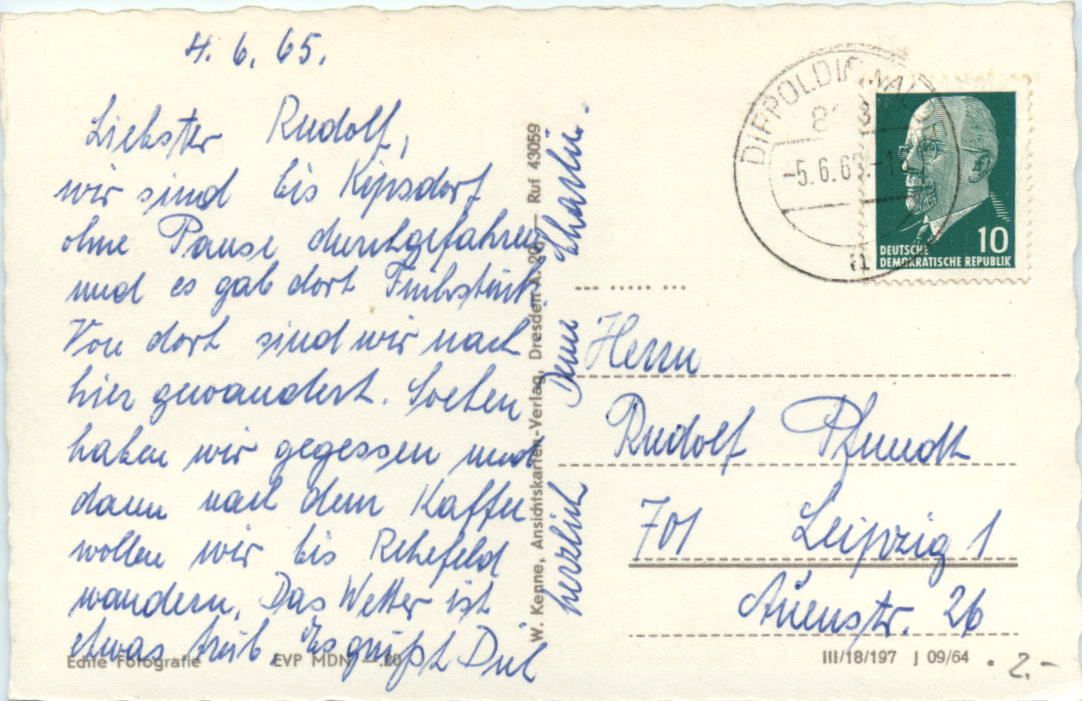 4. 6. 65.
Liebster Rudolf,
wir sind bis Kipsdorf
ohne Pause durchgefahren
und es gab dort Frühstück.
Von dort sind wir nach
hier gewandert. Soeben
haben wir gegessen und
dann nach dem Kaffee
wollen wir bis Rehefeld
wandern. Das Wetter ist
etwas trüb. Es grüßt Dich
herzlich Deine Charlie.
Echte Fotografie EVP MDN -.20
W. Kenne, Ansichtskarten-Verlag, Dresden A. 20 – Ruf 43059
DIPPOLDISWALDE
-5.6.65.-
DEUTSCHE
DEMOKRATISCHE REPUBLIK
10
Herrn
Rudolf Pfundt
701 Leipzig 1
Auenstr. 26
III/18/197 J 09/64
2.-